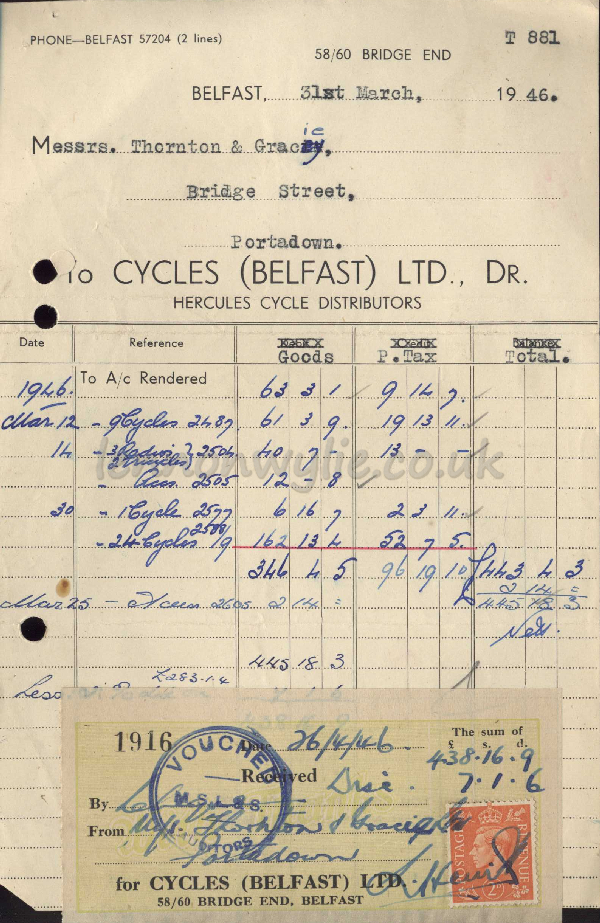 PHONE—BELFAST 57204 (2 lines)
T 881
58/60 BRIDGE END
BELFAST, 31st March, 1946.
Messrs. Thornton & Gracie,
Bridge Street,
Portadown.
To CYCLES (BELFAST) LTD., DR.
HERCULES CYCLE DISTRIBUTORS
Date Reference Goods P.Tax Total.
1946. To A/c Rendered 63 3 1 9 14 7.
Mar 12 - 9 Cycles 2487. 61 3 9. 19 13 11.
14 - 3 2504 40 7 - 13 - -
2 Tricycles
- Accs. 2505 12 - 8
30 - 1 Cycle 2577 6 16 7 2 3 11.
- 24 Cycles 19 162 13 4 52 7 5.
346 4 5 96 19 10 443 4 3
Mar 25 - Accs 2605 2 14 = 2 14 =
445 18 3
Nett.
445 18 3
£283-1-4
Less
lennonwylie.co.uk
1916 Date 26/4/46. The sum of
£ s. d.
438.16.9
Received Disc. 7.1.6
By
From M/s. Thornton & Gracie
Portadown
VOUCHED
M.S.L.&S.
AUDITORS
POSTAGE REVENUE
for CYCLES (BELFAST) LTD.
58/60 BRIDGE END, BELFAST